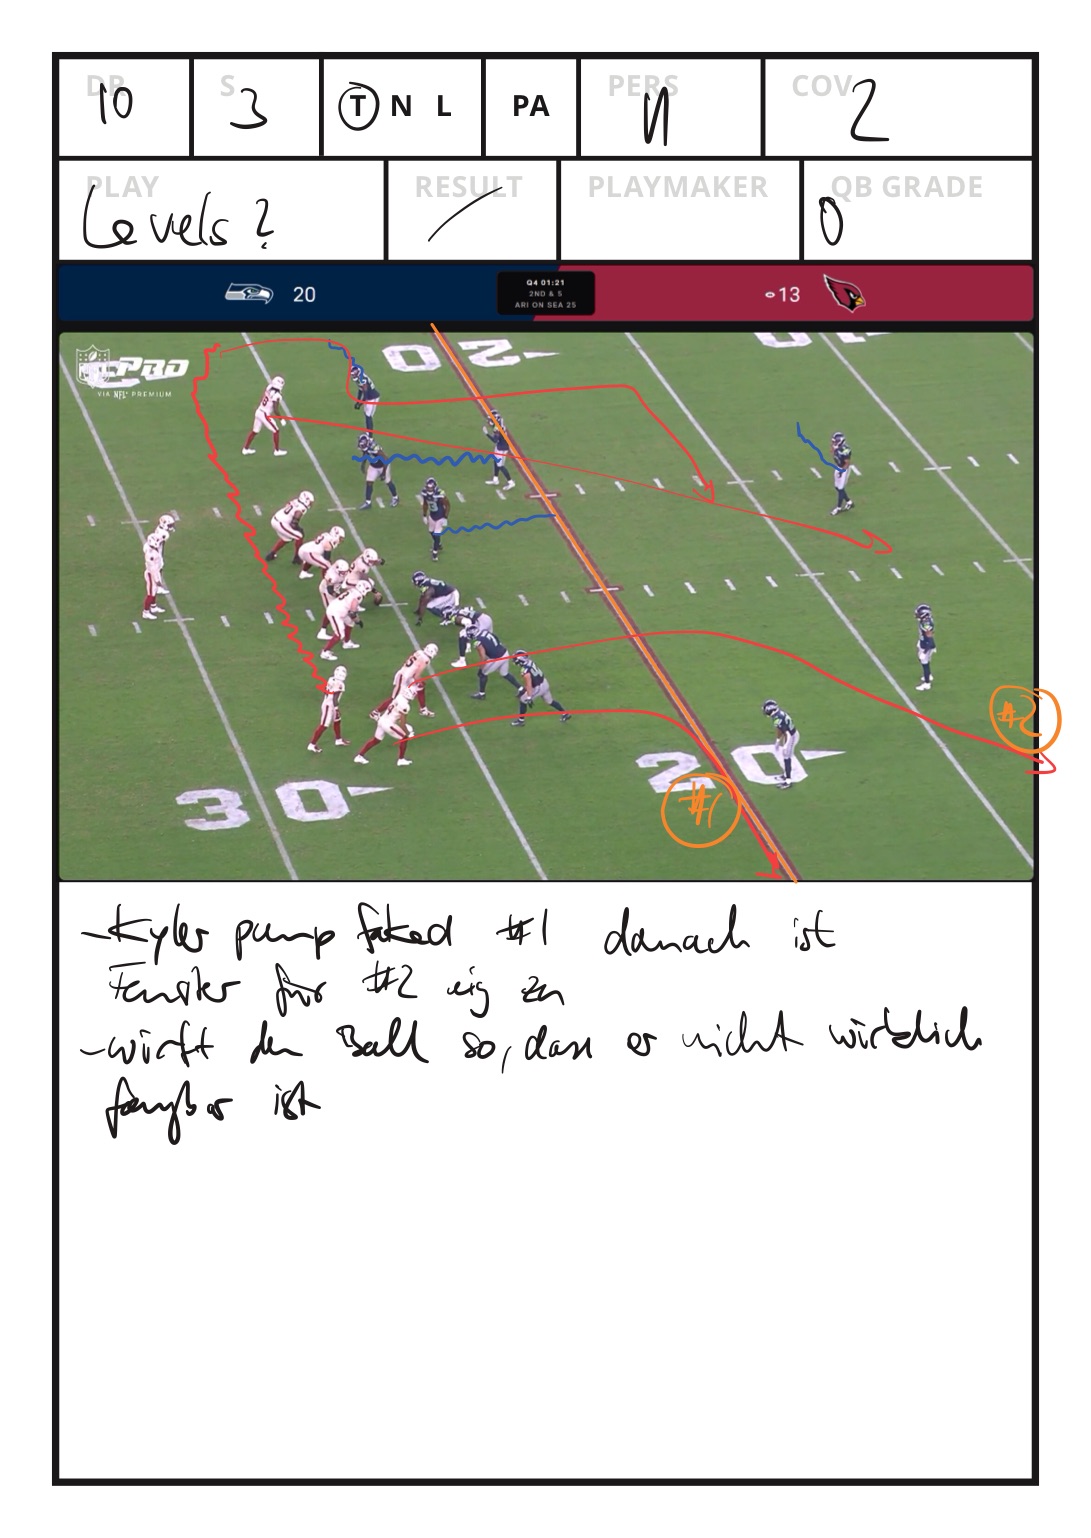 DR S PERS COV
10 3 T N L PA 11 2
PLAY RESULT PLAYMAKER QB GRADE
Levels? / 0
20 13
Q4 01:21
2ND & 5
ARI ON SEA 25
NFL PRO
VIA NFL+ PREMIUM
2 0
30 20
#2
#1
-Kyler pump faked #1 danach ist
Fenster für #2 eig zu
-wirft den Ball so, dass er nicht wirklich
fangbar ist